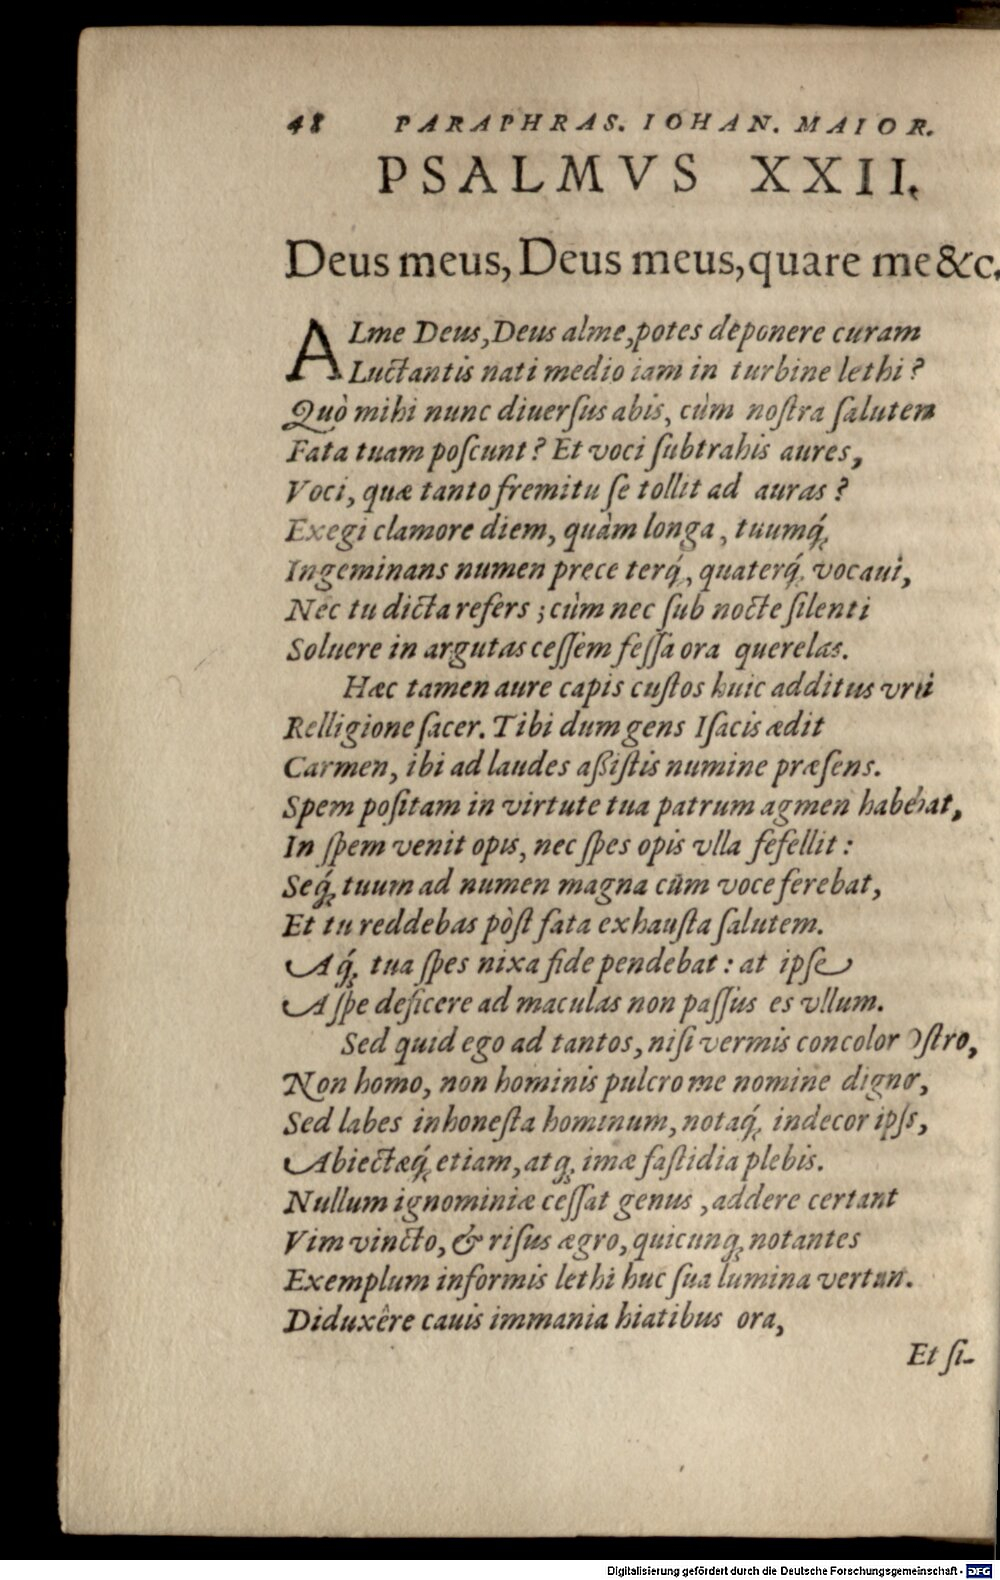 48 PARAPHRAS. IOHAN. MAIOR.
PSALMVS XXII.
Deus meus, Deus meus, quare me &c.
ALme Deus, Deus alme, potes deponere curam
Luctantis nati medio iam in turbine lethi?
Quò mihi nunc diuerſus abis, cùm noſtra ſalutem
Fata tuam poſcunt? Et voci ſubtrahis aures,
Voci, quæ tanto fremitu ſe tollit ad auras?
Exegi clamore diem, quàm longa, tuumq́;
Ingeminans numen prece terq́;, quaterq́; vocaui,
Nec tu dicta refers; cùm nec ſub nocte ſilenti
Soluere in argutas ceſſem feſſa ora querelas.
Hæc tamen aure capis cuſtos huic additus vrni
Relligione ſacer. Tibi dum gens Iſacis ædit
Carmen, ibi ad laudes aßiſtis numine præſens.
Spem poſitam in virtute tua patrum agmen habebat,
In ſpem venit opis, nec ſpes opis vlla fefellit:
Seq́; tuum ad numen magna cūm voce ferebat,
Et tu reddebas pòſt fata exhauſta ſalutem.
Aq́; tua ſpes nixa fide pendebat: at ipſe
A ſpe deficere ad maculas non paſſus es vllum.
Sed quid ego ad tantos, niſi vermis concolor oſtro,
Non homo, non hominis pulcro me nomine dignor,
Sed labes inhoneſta hominum, notaq́; indecor ipſis,
Abiectæq́; etiam, atq; imæ faſtidia plebis.
Nullum ignominiæ ceſſat genus, addere certant
Vim vincto, & riſus ægro, quicunq; notantes
Exemplum informis lethi huc ſua lumina vertun.
Diduxêre cauis immania hiatibus ora,
Et ſi-
Digitalisierung gefördert durch die Deutsche Forschungsgemeinschaft - DFG